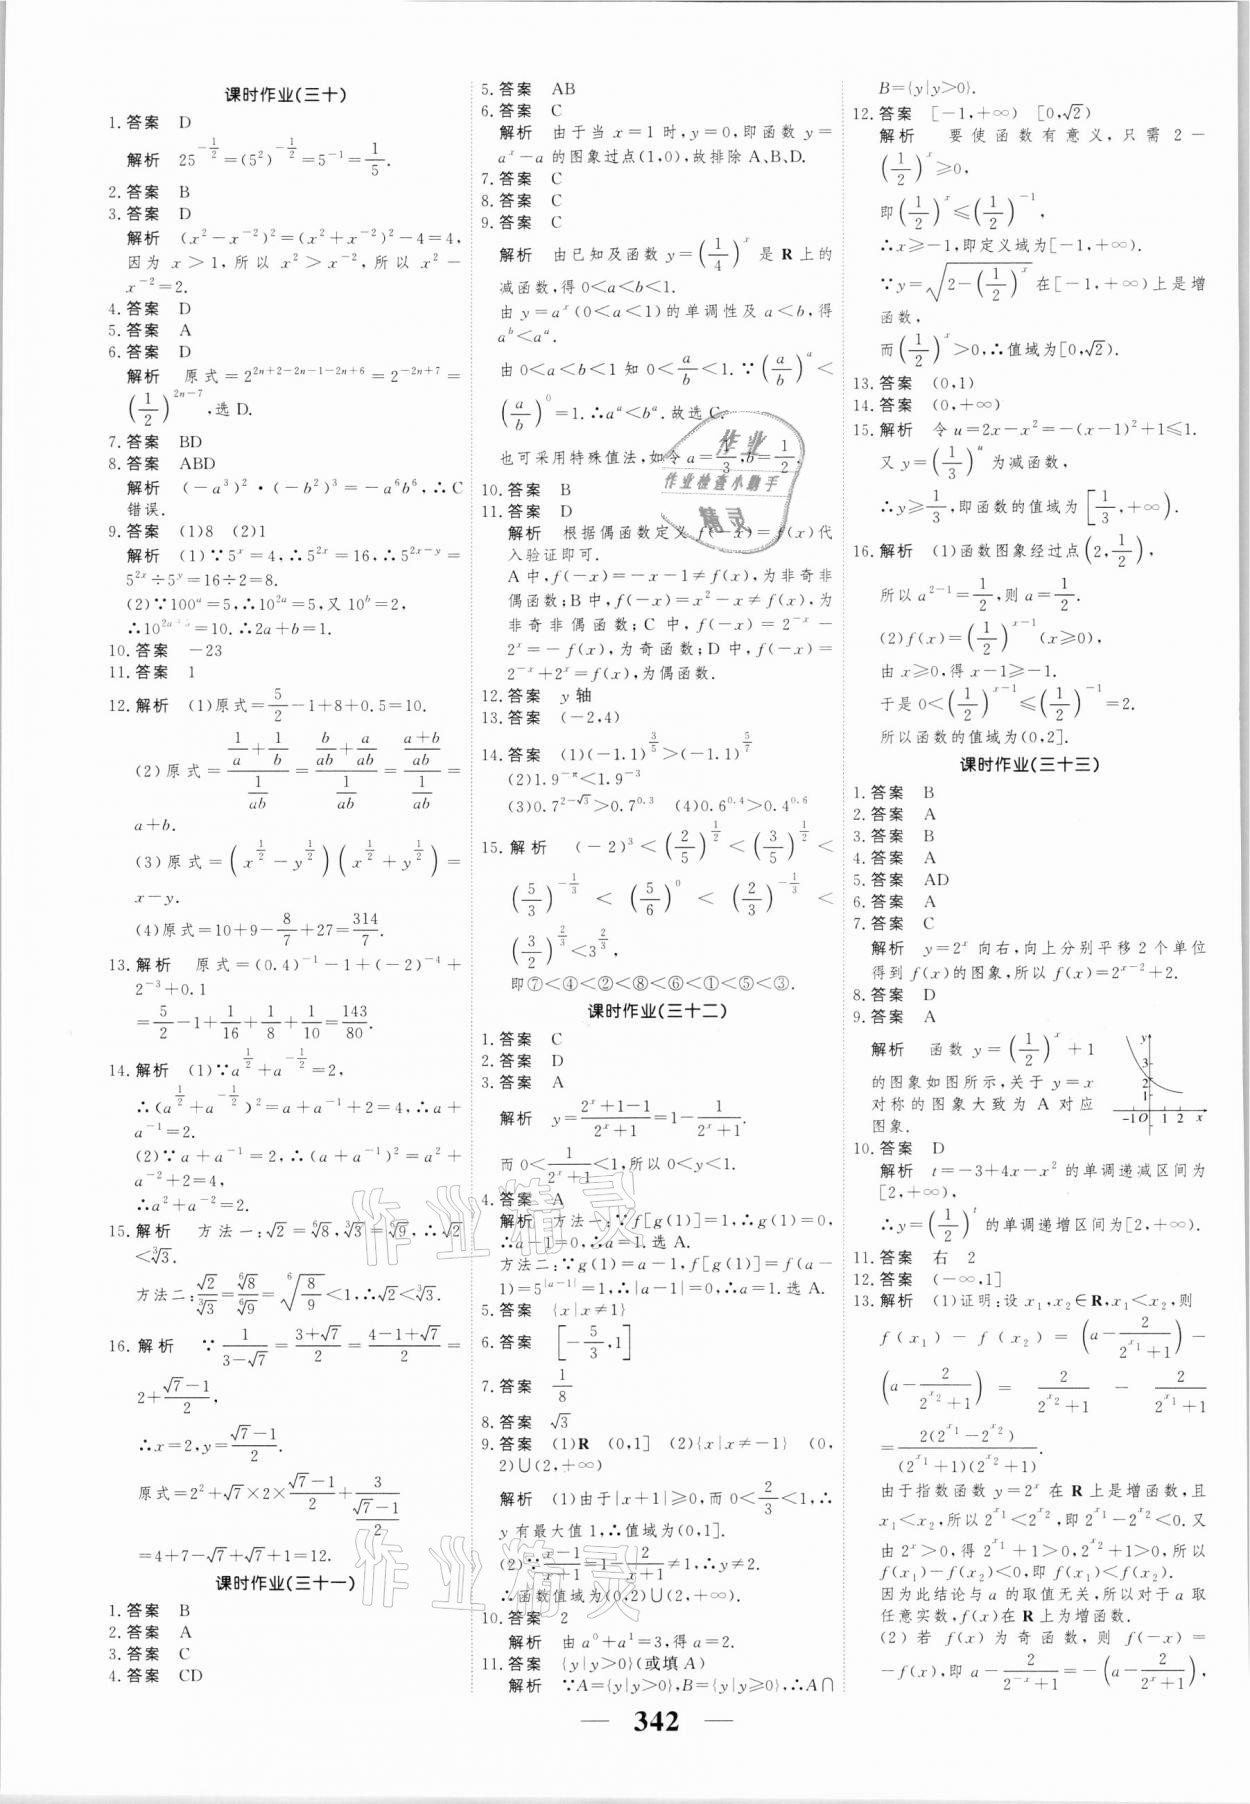 课时作业(三十)
1. 答案 D
解析 25^{-1/2}=(5²)^{-1/2}=5^{-1}=1/5.
2. 答案 B
3. 答案 D
解析 (x²-x^{-2})²=(x²+x^{-2})²-4=4,
因为 x>1,所以 x²>x^{-2},所以 x²-
x^{-2}=2.
4. 答案 D
5. 答案 A
6. 答案 D
解析 原式=2^{2n+2-2n-1-2n+6}=2^{-2n+7}=
(1/2)^{2n-7},选 D.
7. 答案 BD
8. 答案 ABD
解析 (-a³)²·(-b²)³=-a⁶b⁶,∴C
错误.
9. 答案 (1)8 (2)1
解析 (1)∵5^x=4,∴5^{2x}=16,∴5^{2x-y}=
5^{2x}÷5^y=16÷2=8.
(2)∵100^a=5,∴10^{2a}=5,又 10^b=2,
∴10^{2a+b}=10.∴2a+b=1.
10. 答案 -23
11. 答案 1
12. 解析 (1)原式=5/2-1+8+0.5=10.
(2)原式=(1/a+1/b)/(1/ab)=(b/ab+a/ab)/(1/ab)=((a+b)/ab)/(1/ab)=
a+b.
(3)原式=(x^{1/2}-y^{1/2})(x^{1/2}+y^{1/2})=
x-y.
(4)原式=10+9-8/7+27=314/7.
13. 解析 原式=(0.4)^{-1}-1+(-2)^{-4}+
2^{-3}+0.1
=5/2-1+1/16+1/8+1/10=143/80.
14. 解析 (1)∵a^{1/2}+a^{-1/2}=2,
∴(a^{1/2}+a^{-1/2})²=a+a^{-1}+2=4,∴a+
a^{-1}=2.
(2)∵a+a^{-1}=2,∴(a+a^{-1})²=a²+
a^{-2}+2=4,
∴a²+a^{-2}=2.
15. 解析 方法一:√2=⁶√8,³√3=⁶√9,∴√2
<³√3.
方法二:√2/³√3=⁶√8/⁶√9=⁶√(8/9)<1,∴√2<³√3.
16. 解析 ∵1/(3-√7)=(3+√7)/2=(4-1+√7)/2=
2+(√7-1)/2,
∴x=2,y=(√7-1)/2.
原式=2²+√7×2×(√7-1)/2+3/((√7-1)/2)
=4+7-√7+√7+1=12.
课时作业(三十一)
1. 答案 B
2. 答案 A
3. 答案 C
4. 答案 CD
5. 答案 AB
6. 答案 C
解析 由于当 x=1 时,y=0,即函数 y=
a^x-a 的图象过点(1,0),故排除 A、B、D.
7. 答案 C
8. 答案 C
9. 答案 C
解析 由已知及函数 y=(1/4)^x 是 R 上的
减函数,得 0<a<b<1.
由 y=a^x(0<a<1)的单调性及 a<b,得
a^b<a^a.
由 0<a<b<1 知 0<a/b<1.∵(a/b)^a<
(a/b)^0=1.∴a^a<b^a.故选 C.
也可采用特殊值法,如令 a=1/3,b=1/2.
10. 答案 B
11. 答案 D
解析 根据偶函数定义 f(-x)=f(x)代
入验证即可.
A 中,f(-x)=-x-1≠f(x),为非奇非
偶函数;B 中,f(-x)=x²-x≠f(x),为
非奇非偶函数;C 中,f(-x)=2^{-x}-
2^x=-f(x),为奇函数;D 中,f(-x)=
2^{-x}+2^x=f(x),为偶函数.
12. 答案 y 轴
13. 答案 (-2,4)
14. 答案 (1)(-1.1)^{3/5}>(-1.1)^{5/7}
(2)1.9^{-π}<1.9^{-3}
(3)0.7^{2-√3}>0.7^{0.3} (4)0.6^{0.4}>0.4^{0.6}
15. 解析 (-2)³<(2/5)^{1/2}<(3/5)^{1/2}<
(5/3)^{-1/3}<(5/6)^0<(2/3)^{-1/3}<
(3/2)^{2/3}<3^{2/3},
即⑦<④<②<⑧<⑥<①<⑤<③.
课时作业(三十二)
1. 答案 C
2. 答案 D
3. 答案 A
解析 y=(2^x+1-1)/(2^x+1)=1-1/(2^x+1).
而 0<1/(2^x+1)<1,所以 0<y<1.
4. 答案 A
解析 方法一:∵f[g(1)]=1,∴g(1)=0,
∴a-1=0,∴a=1.选 A.
方法二:∵g(1)=a-1,f[g(1)]=f(a-
1)=5^{|a-1|}=1,∴|a-1|=0,∴a=1.选 A.
5. 答案 {x|x≠1}
6. 答案 [-5/3,1]
7. 答案 1/8
8. 答案 √3
9. 答案 (1)R (0,1] (2){x|x≠-1} (0,
2)∪(2,+∞)
解析 (1)由于|x+1|≥0,而 0<2/3<1,∴
y 有最大值 1,∴值域为(0,1].
(2)∵(x-1)/(x+1)=1-2/(x+1)≠1,∴y≠2.
∴函数值域为(0,2)∪(2,+∞).
10. 答案 2
解析 由 a⁰+a¹=3,得 a=2.
11. 答案 {y|y>0}(或填 A)
解析 ∵A={y|y>0},B={y|y≥0},∴A∩
B={y|y>0}.
12. 答案 [-1,+∞) [0,√2)
解析 要使函数有意义,只需 2-
(1/2)^x≥0,
即(1/2)^x≤(1/2)^{-1},
∴x≥-1,即定义域为[-1,+∞).
∵y=√(2-(1/2)^x) 在[-1,+∞)上是增
函数,
而(1/2)^x>0,∴值域为[0,√2).
13. 答案 (0,1)
14. 答案 (0,+∞)
15. 解析 令 u=2x-x²=-(x-1)²+1≤1.
又 y=(1/3)^u 为减函数,
∴y≥1/3,即函数的值域为[1/3,+∞).
16. 解析 (1)函数图象经过点(2,1/2),
所以 a^{2-1}=1/2,则 a=1/2.
(2)f(x)=(1/2)^{x-1}(x≥0),
由 x≥0,得 x-1≥-1.
于是 0<(1/2)^{x-1}≤(1/2)^{-1}=2.
所以函数的值域为(0,2].
课时作业(三十三)
1. 答案 B
2. 答案 A
3. 答案 B
4. 答案 A
5. 答案 AD
6. 答案 A
7. 答案 C
解析 y=2^x 向右,向上分别平移 2 个单位
得到 f(x)的图象,所以 f(x)=2^{x-2}+2.
8. 答案 D
9. 答案 A
解析 函数 y=(1/2)^x+1
的图象如图所示,关于 y=x
对称的图象大致为 A 对应
图象.
y
3
2
1
-1 O 1 2 x
10. 答案 D
解析 t=-3+4x-x² 的单调递减区间为
[2,+∞),
∴y=(1/2)^t 的单调递增区间为[2,+∞).
11. 答案 右 2
12. 答案 (-∞,1]
13. 解析 (1)证明:设 x₁,x₂∈R,x₁<x₂,则
f(x₁)-f(x₂)=(a-2/(2^{x₁}+1))-
(a-2/(2^{x₂}+1))=2/(2^{x₂}+1)-2/(2^{x₁}+1)
=2(2^{x₁}-2^{x₂})/((2^{x₁}+1)(2^{x₂}+1)).
由于指数函数 y=2^x 在 R 上是增函数,且
x₁<x₂,所以 2^{x₁}<2^{x₂},即 2^{x₁}-2^{x₂}<0.又
由 2^x>0,得 2^{x₁}+1>0,2^{x₂}+1>0,所以
f(x₁)-f(x₂)<0,即 f(x₁)<f(x₂).
因为此结论与 a 的取值无关,所以对于 a 取
任意实数,f(x)在 R 上为增函数.
(2)若 f(x)为奇函数,则 f(-x)=
-f(x),即 a-2/(2^{-x}+1)=-(a-2/(2^x+1)),
— 342 —
作业
作业检查小助手
精灵
作业精灵
作业精灵